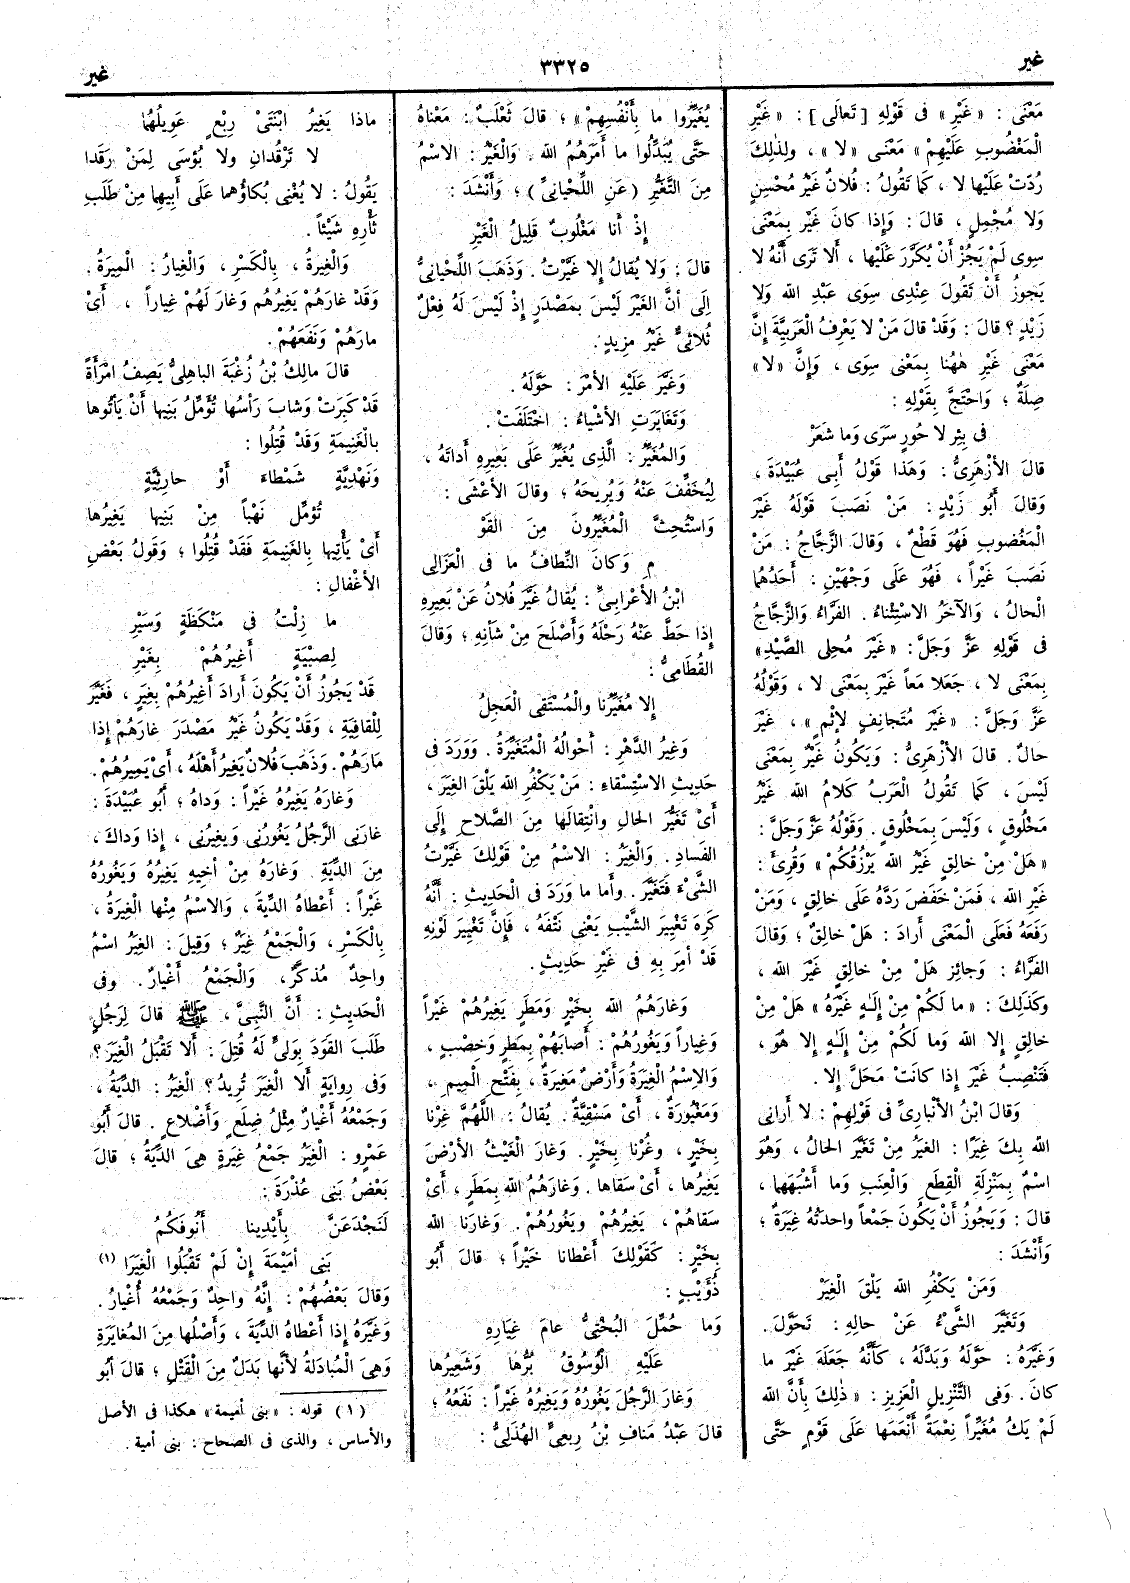 غير
٣٣٢٥
غير
مَعْنَى : «غَيْرِ» فى قَوْلِهِ [تَعالَى] : «غَيْرِ
الْمَغْضُوبِ عَلَيْهِمْ» مَعْنَى «لا» ، ولِذٰلِكَ
رُدَّتْ عَلَيْها لا ، كَما تَقُولُ : فُلانٌ غَيْرُ مُحْسِنٍ
وَلا مُجْمِلٍ ، قالَ : وَإِذا كانَ غَيْر بِمَعْنَى
سِوى لَمْ يَجُزْ أَنْ يُكَرَّرَ عَلَيْها ، أَلا تَرَى أَنَّهُ لا
يَجوزُ أَنْ تَقُولَ عِنْدِى سِوَى عَبْدِ اللهِ وَلا
زَيْدٍ ؟ قالَ : وَقَدْ قالَ مَنْ لا يَعْرِفُ الْعَرَبِيَّةَ إِنَّ
مَعْنَى غَيْرِ هٰهُنا بِمَعْنى سِوَى ، وَإِنَّ «لا»
صِلَةٌ ؛ وَاحْتَجَّ بِقَوْلِهِ :
فى بِئرِ لا حُورٍ سَرَى وَما شَعَرْ
قالَ الأَزْهَرِىُّ : وَهٰذا قَوْلُ أَبِى عُبَيْدَةَ ،
وَقالَ أَبُو زَيْدٍ : مَنْ نَصَبَ قَوْلَهُ غَيْرَ
الْمَغْضُوبِ فَهُوَ قَطْعٌ ، وَقالَ الزَّجَّاجُ : مَنْ
نَصَبَ غَيْراً ، فَهُوَ عَلَى وَجْهَيْنِ : أَحَدُهُما
الْحالُ ، وَالآخَرُ الاسْتِثْناءُ . الفَرَّاءُ وَالزَّجَّاجُ
فى قَوْلِهِ عَزَّ وَجَلَّ : «غَيْرَ مُحِلِى الصَّيْدِ»
بِمَعْنَى لا ، جَعَلا مَعاً غَيْرَ بِمَعْنَى لا ، وَقَوْلُهُ
عَزَّ وَجَلَّ : «غَيْرَ مُتَجانِفٍ لإثْمٍ» ، غَيْرَ
حالٌ . قالَ الأَزْهَرِىُّ : وَيَكُونُ غَيْرٌ بِمَعْنَى
لَيْسَ ، كَما تَقُولُ الْعَرَبُ كَلامُ اللهِ غَيْرُ
مَخْلُوقٍ ، وَلَيْسَ بِمَخْلُوقٍ . وَقَوْلُهُ عَزَّ وَجَلَّ :
«هَلْ مِنْ خالِقٍ غَيْرُ اللهِ يَرْزُقُكُمْ» وَقُرِئَ :
غَيْرِ اللهِ ، فَمَنْ خَفَضَ رَدَّهُ عَلَى خالِقٍ ، وَمَنْ
رَفَعَهُ فَعَلَى الْمَعْنَى أَرادَ : هَلْ خالِقٌ ؛ وَقالَ
الفَرَّاءُ : وَجائِز هَلْ مِنْ خالِقٍ غَيْرَ اللهِ ،
وَكَذٰلِكَ : «ما لَكُمْ مِنْ إِلٰهٍ غَيْرَهُ» هَلْ مِنْ
خالِقٍ إِلا اللهَ وَما لَكُمْ مِنْ إِلٰهٍ إِلا هُوَ ،
فَتَنْصِبُ غَيْرَ إِذا كانَتْ مَحَلَّ إِلا .
وَقالَ ابْنُ الأَنْبارِىِّ فى قَوْلِهِمْ : لا أَرانِى
اللهُ بِكَ غِيَرًا : الغِيَرُ مِنْ تَغَيَّرَ الحالُ ، وَهُوَ
اسْمٌ بِمَنْزِلَةِ القِطَعِ وَالْعِنَبِ وَما أَشْبَهَها ،
قالَ : وَيَجُوزُ أَنْ يَكُونَ جَمْعاً واحِدَتُهُ غِيَرَةٌ ؛
وَأَنْشَدَ :
وَمَنْ يَكْفُرِ اللهَ يَلْقَ الْغِيَرْ
وَتَغَيَّرَ الشَّىْءُ عَنْ حالِهِ : تَحَوَّلَ .
وَغَيَّرَهُ : حَوَّلَهُ وَبَدَّلَهُ ، كَأَنَّهُ جَعَلَهُ غَيْرَ ما
كانَ . وَفى التَّنْزِيلِ الْعَزِيزِ : «ذٰلِكَ بِأَنَّ اللهَ
لَمْ يَكُ مُغَيِّراً نِعْمَةً أَنْعَمَها عَلَى قَوْمٍ حَتَّى
يُغَيِّرُوا ما بِأَنْفُسِهِمْ» ؛ قالَ ثَعْلَبٌ : مَعْناهُ
حَتَّى يُبَدِّلُوا ما أَمَرَهُمُ اللهُ . وَالْغَيْرُ : الاسْمُ
مِنَ التَّغَيُّرِ (عَنِ اللِّحْيانِىِّ) ؛ وَأَنْشَدَ :
إِذْ أَنا مَغْلُوبٌ قَلِيلُ الْغَيْرِ
قالَ : وَلا يُقالُ إِلا غَيَّرْتُ . وَذَهَبَ اللِّحْيانِىُّ
إِلَى أَنَّ الغَيْرَ لَيْسَ بِمَصْدَرٍ إِذْ لَيْسَ لَهُ فِعْلٌ
ثُلاثِىٌّ غَيْرُ مزِيدٍ .
وَغَيَّرَ عَلَيْهِ الأَمْرَ : حَوَّلَهُ .
وَتَغايَرَتِ الأَشْياءُ : اخْتَلَفَتْ .
وَالمُغَيِّرُ : الَّذِى يُغَيِّرُ عَلَى بَعِيرِهِ أَداتَهُ ،
لِيُخَفِّفَ عَنْهُ وَيُرِيحَهُ ؛ وقالَ الأَعْشَى :
وَاسْتُحِثَّ الْمُغَيِّرُونَ مِنَ القَوْ
مِ وَكانَ النِّطافُ ما فى الْعَزَالِى
ابْنُ الأَعْرابِىِّ : يُقالُ غَيَّرَ فُلانٌ عَنْ بَعِيرِهِ
إِذا حَطَّ عَنْهُ رَحْلَهُ وَأَصْلَحَ مِنْ شَأْنِهِ ؛ وَقالَ
القُطَامِىُّ :
إِلا مُغَيِّرُنا والْمُسْتَقِى الْعَجِلُ
وَغِيَرُ الدَّهْرِ : أَحْوالُهُ الْمُتَغَيِّرَةُ . وَوَرَدَ فى
حَدِيثِ الاسْتِسْقاءِ : مَنْ يَكْفُرِ اللهَ يَلْقَ الغِيَرَ ،
أَىْ تَغَيُّرَ الحالِ وانْتِقالَها مِنَ الصَّلاحِ إِلَى
الفَسادِ . وَالْغِيَرُ : الاسْمُ مِنْ قَوْلِكَ غَيَّرْتُ
الشَّىْءَ فَتَغَيَّرَ . وأَما ما وَرَدَ فى الْحَدِيثِ : أَنَّهُ
كَرِهَ تَغْيِيرَ الشَّيْبِ يَعْنِى نَتْفَهُ ، فَإِنَّ تَغْيِيرَ لَوْنِهِ
قَدْ أُمِرَ بِهِ فى غَيْرِ حَدِيثٍ .
وَغارَهُمُ اللهُ بِخَيْرٍ وَمَطَرٍ يَغِيرُهُمْ غَيْراً
وَغِياراً وَيَغُورُهُمْ : أَصابَهُمْ بِمَطَرٍ وَخِصْبٍ ،
وَالاِسْمُ الْغِيرَةُ وَأَرْضٌ مَغِيرَةٌ ، بِفَتْحِ الْمِيمِ ،
وَمَغْيُورَةٌ ، أَىْ مَسْقِيَّةٌ . يُقالُ : اللَّهُمَّ غِرْنا
بِخَيْرٍ ، وَغُرْنا بِخَيْرٍ . وَغارَ الْغَيْثُ الأَرْضَ
يَغِيرُها ، أَىْ سَقاها . وَغارَهُمُ اللهُ بِمَطَرٍ ، أَىْ
سَقاهُمْ ، يَغِيرُهُمْ وَيَغُورُهُمْ . وَغارَنا اللهُ
بِخَيْرٍ : كَقَوْلِكَ أَعْطانا خَيْراً ؛ قالَ أَبُو
ذُؤَيْبٍ :
وَما حُمِّلَ البُخْتِىُّ عامَ غِيَارِهِ
عَلَيْهِ الْوُسُوقُ بُرُّها وَشَعِيرُها
وَغارَ الرَّجُلَ يَغُورُهُ وَيَغِيرُهُ غَيْراً : نَفَعَهُ ؛
قالَ عَبْدُ مَنافِ بْنُ رِبعِىٍّ الهُذَلِىُّ :
ماذا يَغِيرُ ابْنَتَىْ رِبْعٍ عَوِيلُهُما
لا تَرْقُدانِ ولا بُؤْسَى لِمَنْ رَقَدا
يَقُولُ : لا يُغْنِى بُكاؤُهما عَلَى أَبِيهِا مِنْ طَلَبِ
ثَأْرِهِ شَيْئاً .
وَالْغِيرَةُ ، بِالْكَسْرِ ، وَالْغِيارُ : الْمِيرَةُ .
وَقَدْ غارَهُمْ يَغِيرُهُم وَغارَ لَهُمْ غِياراً ، أَىْ
مارَهُمْ وَنَفَعَهُمْ .
قالَ مالِكُ بْنُ زُغْبَةَ الباهِلِىُّ يَصِفُ امْرَأَةً
قَدْ كَبِرَتْ وَشابَ رَأْسُها تُؤَمِّلُ بَنِيها أَنْ يَأْتُوها
بِالْغَنِيمَةِ وَقَدْ قُتِلُوا :
وَنَهْدِيَّةٍ شَمْطاءَ أَوْ حارِثِيَّةٍ
تُؤَمِّلُ نَهْباً مِنْ بَنِيها يَغِيرُها
أَىْ يَأْتِيها بِالغَنِيمَةِ فَقَدْ قُتِلُوا ؛ وَقَولُ بَعْضِ
الأَغْفالِ :
ما زِلْتُ فى مَنْكَظَةٍ وَسَيْرِ
لِصِبْيَةٍ أَغِيرُهُمْ بِغَيْرِ
قَدْ يَجُوزُ أَنْ يَكُونَ أَرادَ أَغِيرُهُمْ بِغِيَرٍ ، فَغَيَّرَ
لِلْقافِيَةِ ، وَقَدْ يَكُونُ غَيْرُ مَصْدَرَ غارَهُمْ إِذا
مَارَهُمْ . وَذَهَبَ فُلانٌ يَغِيرُ أَهْلَهُ ، أَىْ يَمِيرُهُمْ .
وَغارَهُ يَغِيرُهُ غَيْراً : وَداهُ ؛ أَبُو عُبَيْدَةَ :
غارَنِى الرَّجُلُ يَغُورُنِى وَيَغِيرُنِى ، إِذا وَداكَ ،
مِنَ الدِّيَةِ . وَغارَهُ مِنْ أَخِيهِ يَغِيرُهُ وَيَغُورُهُ
غَيْراً : أَعْطاهُ الدِّيَةَ ، وَالاسْمُ مِنْها الْغِيرَةُ ،
بِالْكَسْرِ ، وَالْجَمْعُ غِيَرٌ ؛ وَقِيلَ : الغِيَرُ اسْمٌ
واحِدٌ مُذكَّرٌ ، وَالْجَمْعُ أَغْيارٌ . وَفى
الْحَدِيثِ : أَنَّ النَّبِىَّ ، ﷺ قالَ لِرَجُلٍ
طَلَبَ القَوَدَ بِوَلِىٍّ لَهُ قُتِلَ : أَلا تَقْبَلُ الْغِيَرَ ؟
وَفى رِوايَةٍ أَلا الْغِيَرَ تُرِيدُ ؟ الْغِيَرُ : الدِّيَةُ ،
وَجَمْعُهُ أَغْيارٌ مِثْلُ ضِلَعٍ وَأَضْلاعٍ . قالَ أَبُو
عَمْرٍو : الْغِيَرُ جَمْعُ غِيرَةٍ هِىَ الدِّيَةُ ؛ قالَ
بَعْضُ بَنِى عُذْرَةَ :
لَنَجْدَعَنَّ بِأَيْدِينا أُنُوفَكُمُ
بَنِى أُمَيْمَةَ إِنْ لَمْ تَقْبَلُوا الْغِيَرَا (١)
وَقالَ بَعْضُهُمْ : إِنَّهُ واحِدٌ وَجَمْعُهُ أَغْيارٌ .
وَغَيَّرَهُ إِذا أَعْطاهُ الدِّيَةَ ، وَأَصْلُها مِنَ المُغايَرَةِ
وَهِىَ الْمُبادَلَةُ لأَنَّها بَدَلٌ مِنَ الْقَتْلِ ؛ قالَ أَبُو
(١) قوله : «بنى أميمة» هكذا فى الأصل
والأساس ، والذى فى الصحاح : بنى أمية .